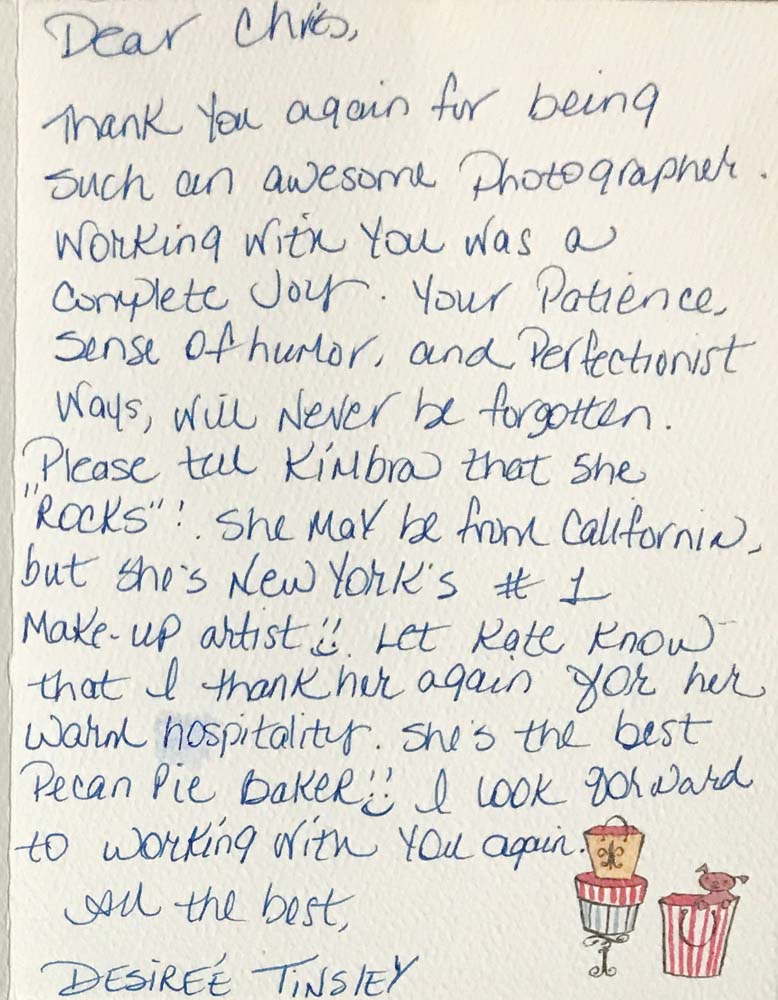 Dear Chris,
Thank You again for being
such an awesome Photographer.
Working With You Was a
Complete Joy. Your Patience,
Sense Of humor, and Perfectionist
Ways, Will Never be forgotten.
Please tell Kimbra that She
"ROCKS"! She May be from California,
but she's New York's # 1
Make-up artist!! Let Kate Know
that I thank her again for her
Warm hospitality. She's the best
Pecan Pie Baker!! I Look forward
to Working With You again.
All the best,
DESIREÉ TINSLEY